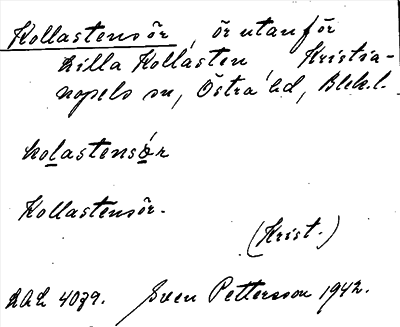 Kollastensör, ör utanför
Lilla Kollasten Kristia-
nopels sn, Östra hd, Blek.l.
kolastensør
Kollastensör.
(Krist.)
LAL 4039. Sven Pettersson 1942.